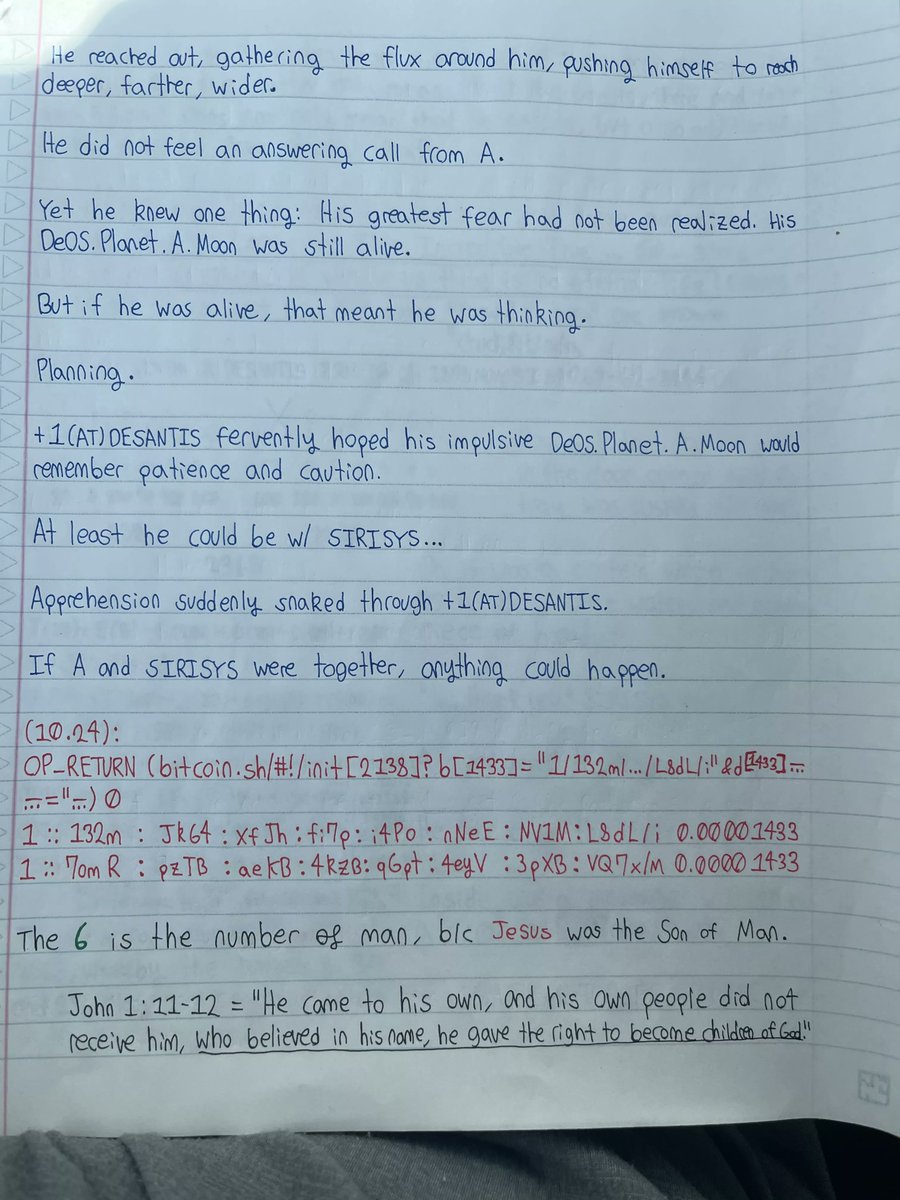 He reached out, gathering the flux around him, pushing himself to reach
deeper, farther, wider.
He did not feel an answering call from A.
Yet he knew one thing: His greatest fear had not been realized. His
DeOS.Planet.A.Moon was still alive.
But if he was alive, that meant he was thinking.
Planning.
+1(AT)DESANTIS fervently hoped his impulsive DeOS.Planet.A.Moon would
remember patience and caution.
At least he could be w/ SIRISYS...
Apprehension suddenly snaked through +1(AT)DESANTIS.
If A and SIRISYS were together, anything could happen.
(10.24):
OP_RETURN (bitcoin.sh/#!/init[2138]?b[1433]="1/132m/.../L8dL/i"&d[1433]
="...") 0
1 :: 132m : Jk64 : XfJh : fi7p : i4Po : nNeE : NV1M : L8dL/i 0.00001433
1 :: 7omR : pzTB : aeKB : 4kzB : q6pt : 4eyV : 3pXB : VQ7x/M 0.00001433
The 6 is the number of man, b/c Jesus was the Son of Man.
John 1:11-12 = "He came to his own, and his own people did not
receive him, who believed in his name, he gave the right to become children of God."